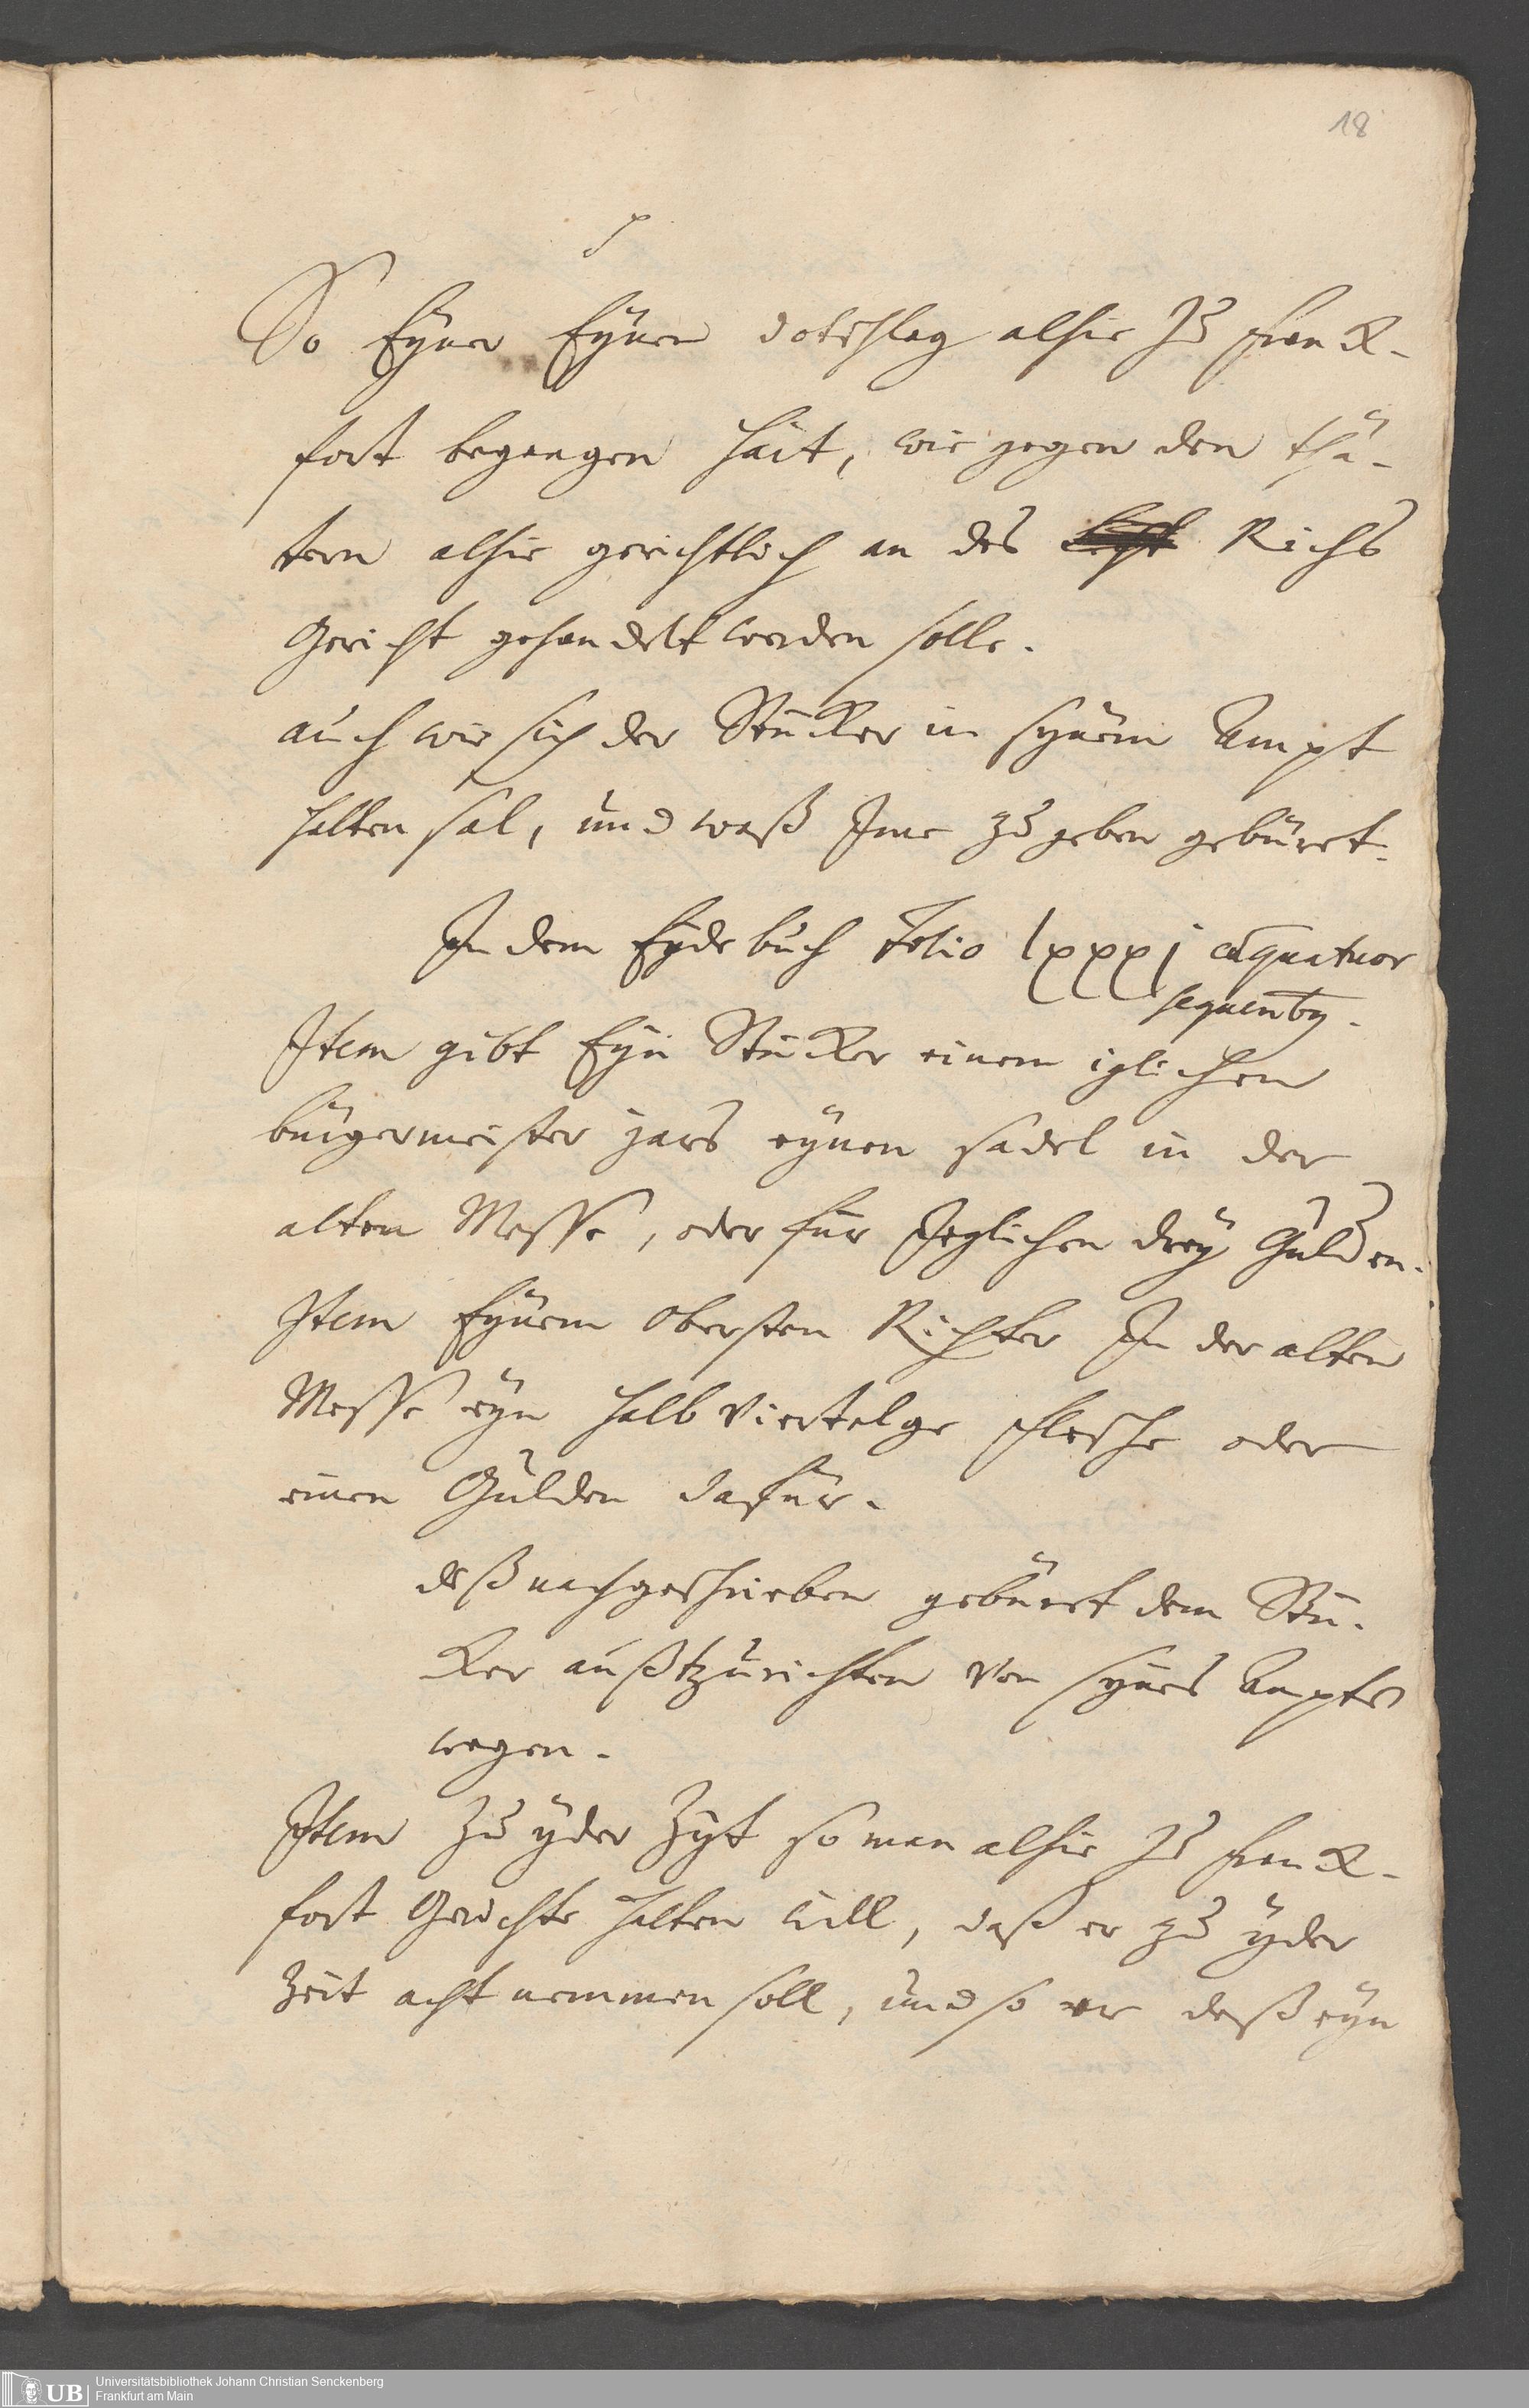 18
So Eyner Eynen dotschlag alhie Zu franck-
fort begangen hait, wie gegen den thä-
tern alhie gerichtlich an des Richs
Gericht gehandelt werden solle.
auch wie sich der Stücker in synem Ampt
halten sal, und waß Ime zu geben gebüret.
In dem Eydebuch Folio lxxxj quatuor
sequentb9.
Item gibt Eyn Stücker einem iglichen
burgermeister jars eynen sadel in der
alten Messe, oder für Jeglichen drey Gulden.
Item Eynem Obersten Richter In der alten
Messe eyn halb viertelge flesche oder
einen Gulden dafür.
deß nachgeschrieben gebüret dem Stü-
cker außtzurichten von synes Ampts
wegen.
Item Zu yder Zyt so man alhie Zu franck-
fort Gerichte halten will, daß er zu yder
Zeit acht nemmen soll, und so er deß eyn
Universitätsbibliothek Johann Christian Senckenberg
UB Frankfurt am Main